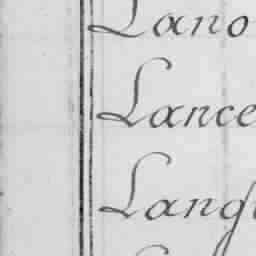 Lano
Lance
Lang